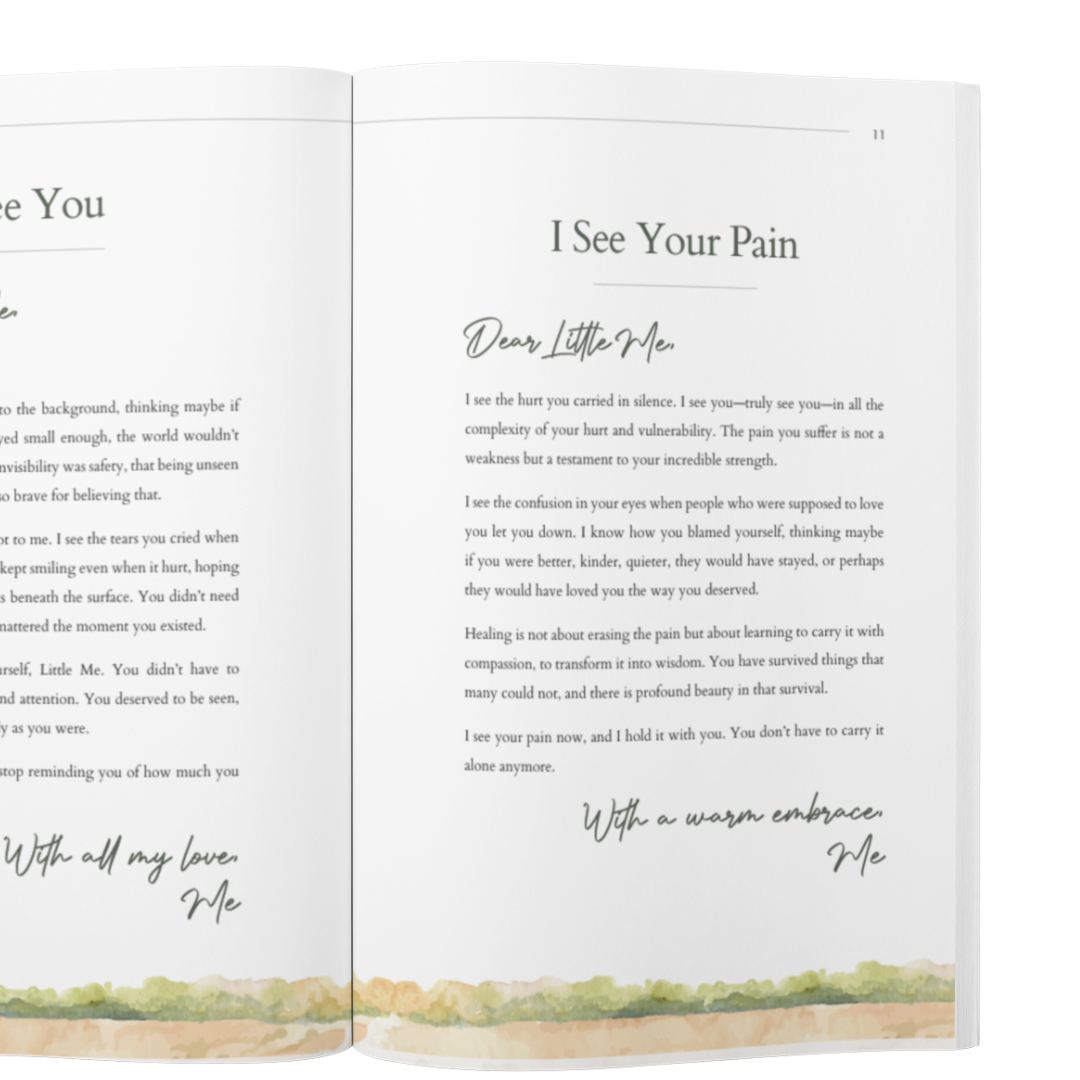 ee You
e,
to the background, thinking maybe if
yed small enough, the world wouldn't
nvisibility was safety, that being unseen
so brave for believing that.
ot to me. I see the tears you cried when
kept smiling even when it hurt, hoping
s beneath the surface. You didn't need
mattered the moment you existed.
urself, Little Me. You didn't have to
nd attention. You deserved to be seen,
ly as you were.
stop reminding you of how much you
With all my love,
Me
11
I See Your Pain
Dear Little Me,
I see the hurt you carried in silence. I see you—truly see you—in all the
complexity of your hurt and vulnerability. The pain you suffer is not a
weakness but a testament to your incredible strength.
I see the confusion in your eyes when people who were supposed to love
you let you down. I know how you blamed yourself, thinking maybe
if you were better, kinder, quieter, they would have stayed, or perhaps
they would have loved you the way you deserved.
Healing is not about erasing the pain but about learning to carry it with
compassion, to transform it into wisdom. You have survived things that
many could not, and there is profound beauty in that survival.
I see your pain now, and I hold it with you. You don't have to carry it
alone anymore.
With a warm embrace,
Me